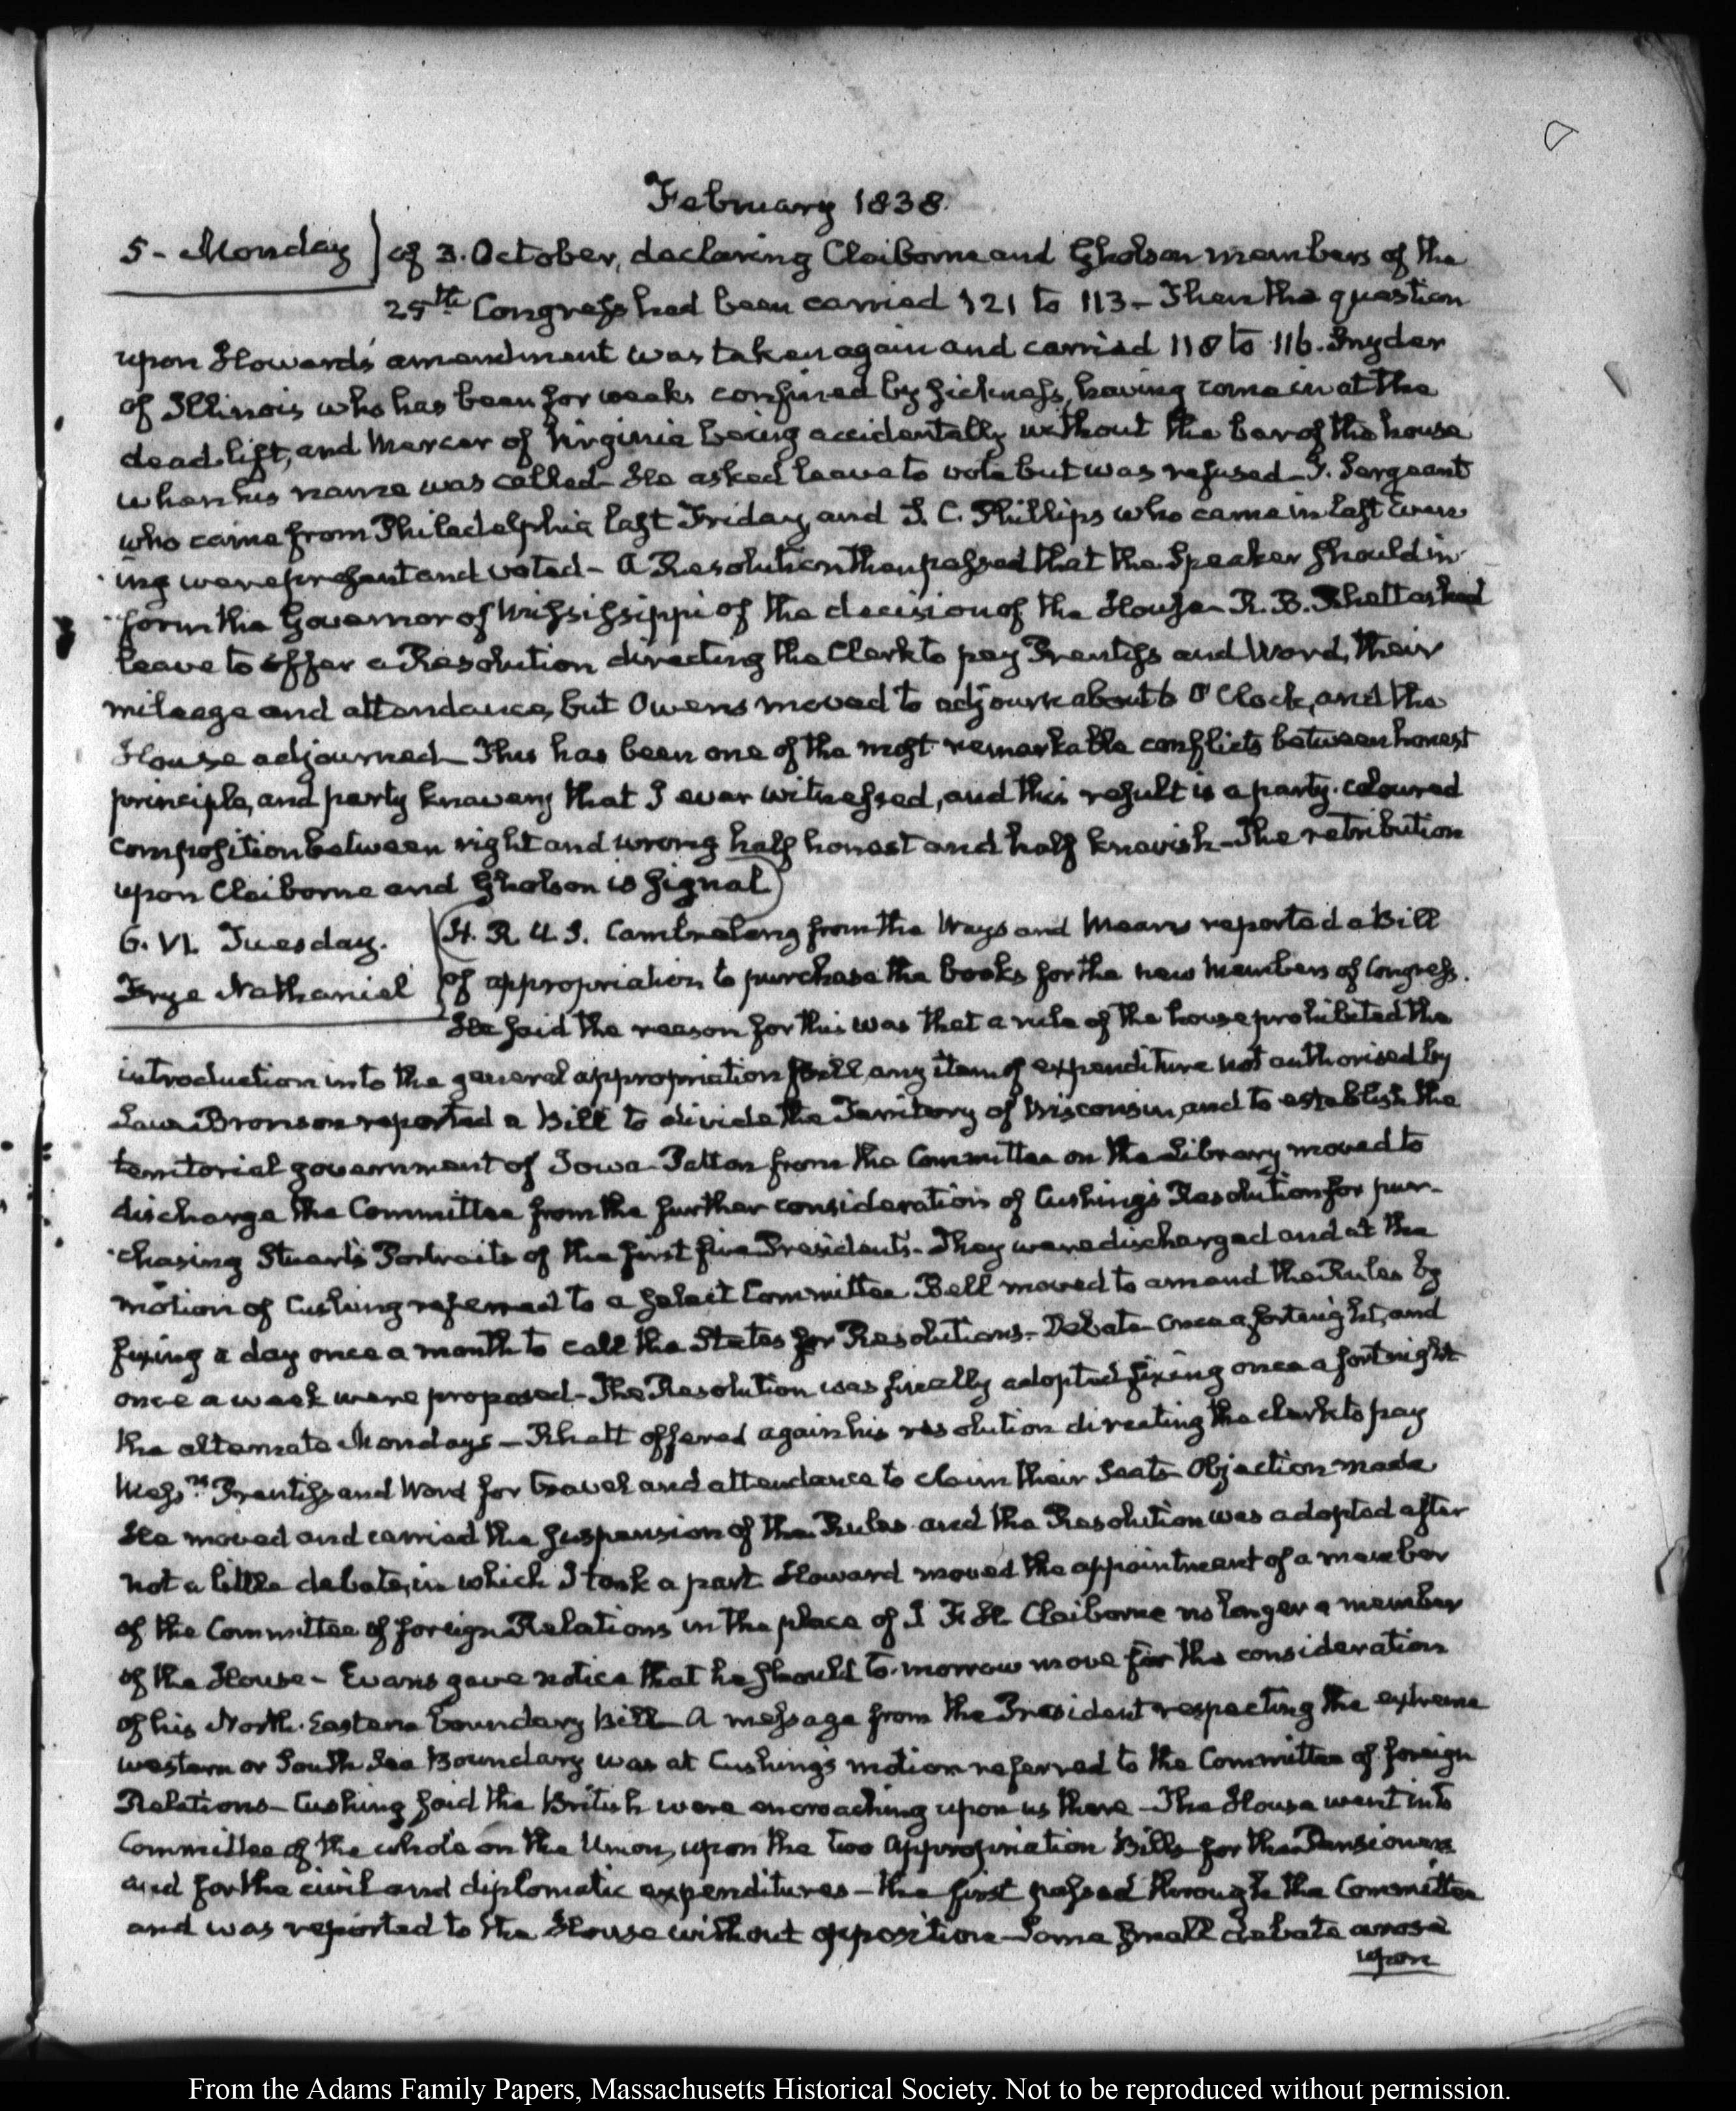 February 1838.
5 - Monday) of 3. October, declaring Claiborne and Gholson members of the
25th Congress had been carried 121 to 113 - Then the question
upon Howard's amendment was taken again and carried 118 to 116. Snyder
of Illinois who has been for weeks confined by sickness, having come in at the
dead lift, and Mercer of Virginia being accidentally without the bar of the house
when his name was called - He asked leave to vote but was refused - J. Sergeant
who came from Philadelphia last Friday, and S. C. Phillips who came in last Even
ing were present and voted - A Resolution then passed that the Speaker should in
form the Governor of Mississippi of the decision of the House - R. B. Rhett asked
leave to offer a Resolution directing the Clerk to pay Prentiss and Word, their
mileage and attendance, but Owens moved to adjourn about 6 O'Clock, and the
House adjourned - This has been one of the most remarkable conflicts between honest
principle, and party knavery that I ever witnessed, and this result is a party-coloured
composition between right and wrong half honest and half knavish - The retribution
upon Claiborne and Gholson is signal)
6. VI. Tuesday. (H. R. U. S. Cambreleng from the Ways and Means reported a Bill
Frye Nathaniel of appropriation to purchase the books for the new Members of Congress.
He said the reason for this was that a rule of the house prohibited the
introduction into the general appropriation Bill, any item of expenditure not authorised by
Law. Bronson reported a Bill to divide the Territory of Wisconsin, and to establish the
territorial government of Iowa - Patton from the Committee on the Library moved to
discharge the Committee from the further consideration of Cushing's Resolution for pur-
chasing Stuart's Portraits of the first five Presidents - They were discharged and at the
motion of Cushing referred to a select Committee. Bell moved to amend the Rules by
fixing a day once a month to call the States for Resolutions - Debate - Once a fortenight, and
once a week were proposed - The Resolution was finally adopted fixing once a fortnight
the alternate Mondays - Rhett offered again his resolution directing the clerk to pay
Messrs Prentiss and Word for travel and attendance to claim their Seats - Objection made
He moved and carried the suspension of the Rules and the Resolution was adopted after
not a little debate, in which I took a part. Howard moved the appointment of a member
of the Committee of foreign Relations in the place of J F H. Claiborne no longer a member
of the House - Evans gave notice that he should to-morrow move for the consideration
of his North-Eastern boundary Bill - A message from the President respecting the extreme
western or South Sea Boundary was at Cushing's motion referred to the Committee of foreign
Relations - Cushing said the British were encroaching upon us there - The House went into
Committee of the whole on the Union, upon the two Appropriation Bills for the Pensioners
and for the civil and diplomatic expenditures - the first passed through the Committee
and was reported to the House without opposition - Some small debate arose
upon
From the Adams Family Papers, Massachusetts Historical Society. Not to be reproduced without permission.